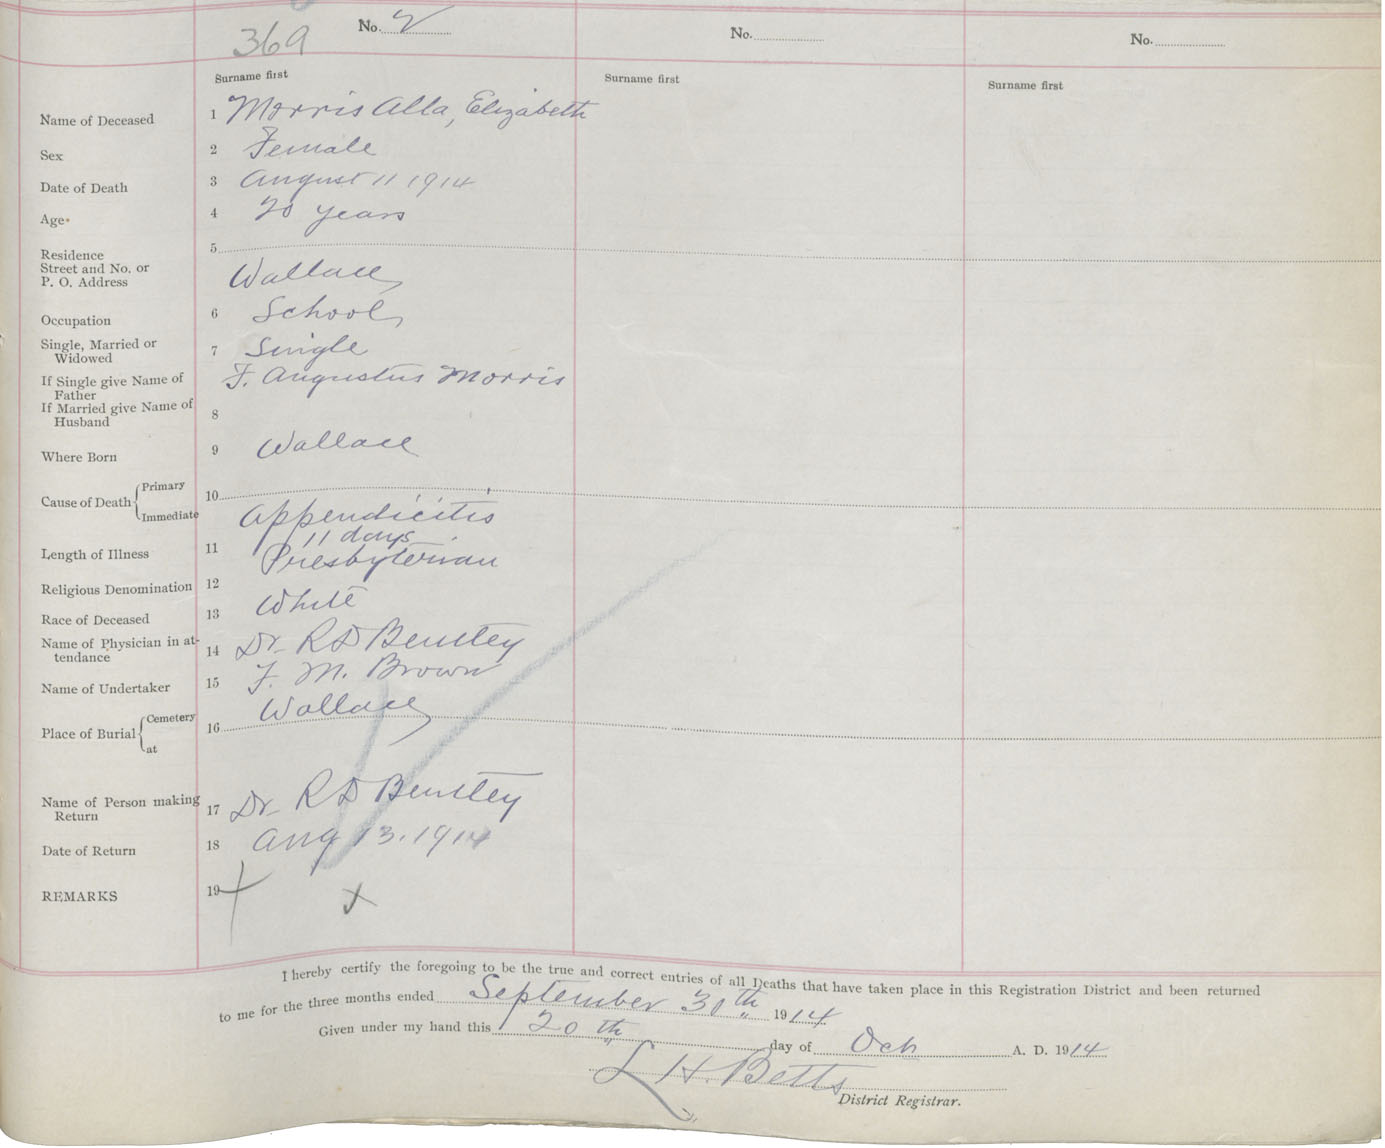 No. 2 No. No.
369
Surname first Surname first Surname first
Name of Deceased 1 Morris Alla, Elizabeth
Sex 2 Female
Date of Death 3 August 11 1914
Age 4 20 years
Residence 5
Street and No. or
P. O. Address Wallace
Occupation 6 School
Single, Married or
Widowed 7 Single
If Single give Name of
Father F. Augustus Morris
If Married give Name of
Husband 8
Where Born 9 Wallace
Cause of Death Primary 10
Immediate Appendicitis
Length of Illness 11 11 days
Religious Denomination 12 Presbyterian
Race of Deceased 13 White
Name of Physician in at-
tendance 14 Dr. R D Bentley
Name of Undertaker 15 F. M. Brown
Place of Burial Cemetery 16 Wallace
at
Name of Person making
Return 17 Dr. R D Bentley
Date of Return 18 Aug 13, 1914
REMARKS 19 x
I hereby certify the foregoing to be the true and correct entries of all Deaths that have taken place in this Registration District and been returned
to me for the three months ended September 30th 1914
Given under my hand this 20th day of Oct A. D. 1914
L H. Betts
District Registrar.